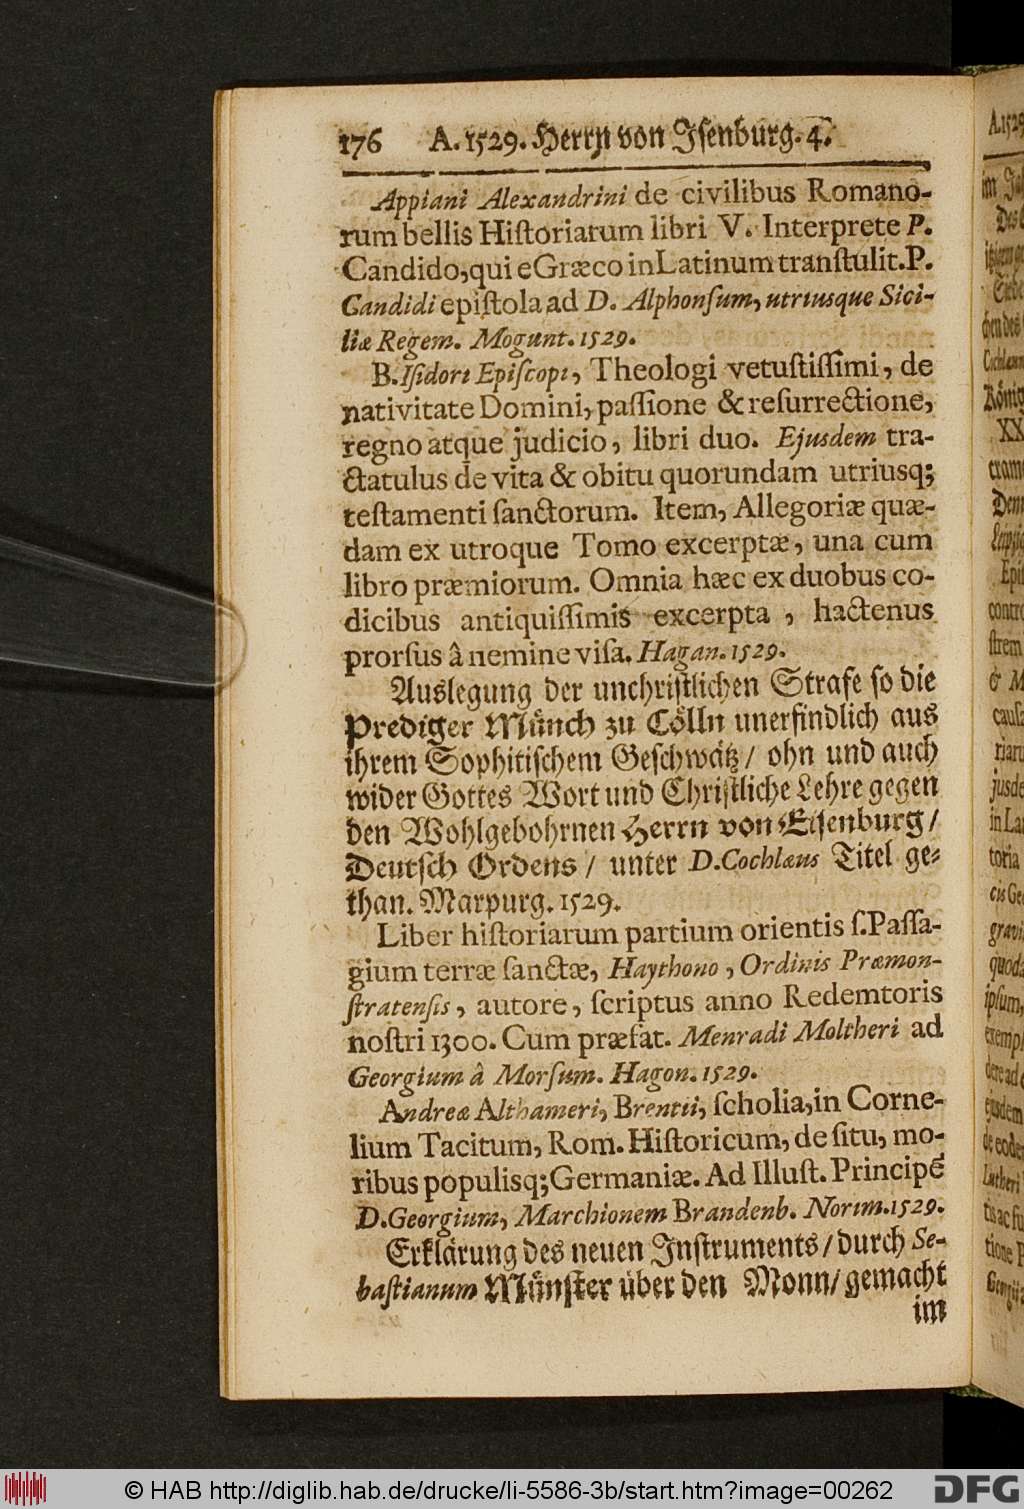 176 A. 1529. Herrn von Isenburg. 4.
Appiani Alexandrini de civilibus Romano-
rum bellis Hiſtoriarum libri V. Interprete P.
Candido, qui e Græco in Latinum tranſtulit. P.
Candidi epiſtola ad D. Alphonſum, utriusque Sici-
liæ Regem. Mogunt. 1529.
B. Iſidori Epiſcopi, Theologi vetuſtiſſimi, de
nativitate Domini, paſſione & reſurrectione,
regno atque judicio, libri duo. Ejusdem tra-
ctatulus de vita & obitu quorundam utriusq;
teſtamenti ſanctorum. Item, Allegoriæ quæ-
dam ex utroque Tomo excerptæ, una cum
libro præmiorum. Omnia hæc ex duobus co-
dicibus antiquiſſimis excerpta, hactenus
prorſus â nemine viſa. Hagan. 1529.
Auslegung der unchriſtlichen Strafe ſo die
Prediger Münch zu Cölln unerfindlich aus
ihrem Sophitiſchem Geſchwätz / ohn und auch
wider Gottes Wort und Chriſtliche Lehre gegen
den Wohlgebohrnen Herrn von Eiſenburg /
Deutſch Ordens / unter D. Cochlæus Titel ge-
than. Marpurg. 1529.
Liber hiſtoriarum partium orientis ſ. Paſſa-
gium terræ ſanctæ, Haythono, Ordinis Præmon-
ſtratenſis, autore, ſcriptus anno Redemtoris
noſtri 1300. Cum præfat. Menradi Moltheri ad
Georgium â Morſum. Hagon. 1529.
Andreæ Althameri, Brentii, ſcholia, in Corne-
lium Tacitum, Rom. Hiſtoricum, de ſitu, mo-
ribus populisq; Germaniæ. Ad Illuſt. Principē
D. Georgium, Marchionem Brandenb. Norim. 1529.
Erklärung des neuen Inſtruments / durch Se-
baſtianum Münſter über den Monn / gemacht
im
© HAB http://diglib.hab.de/drucke/li-5586-3b/start.htm?image=00262
DFG